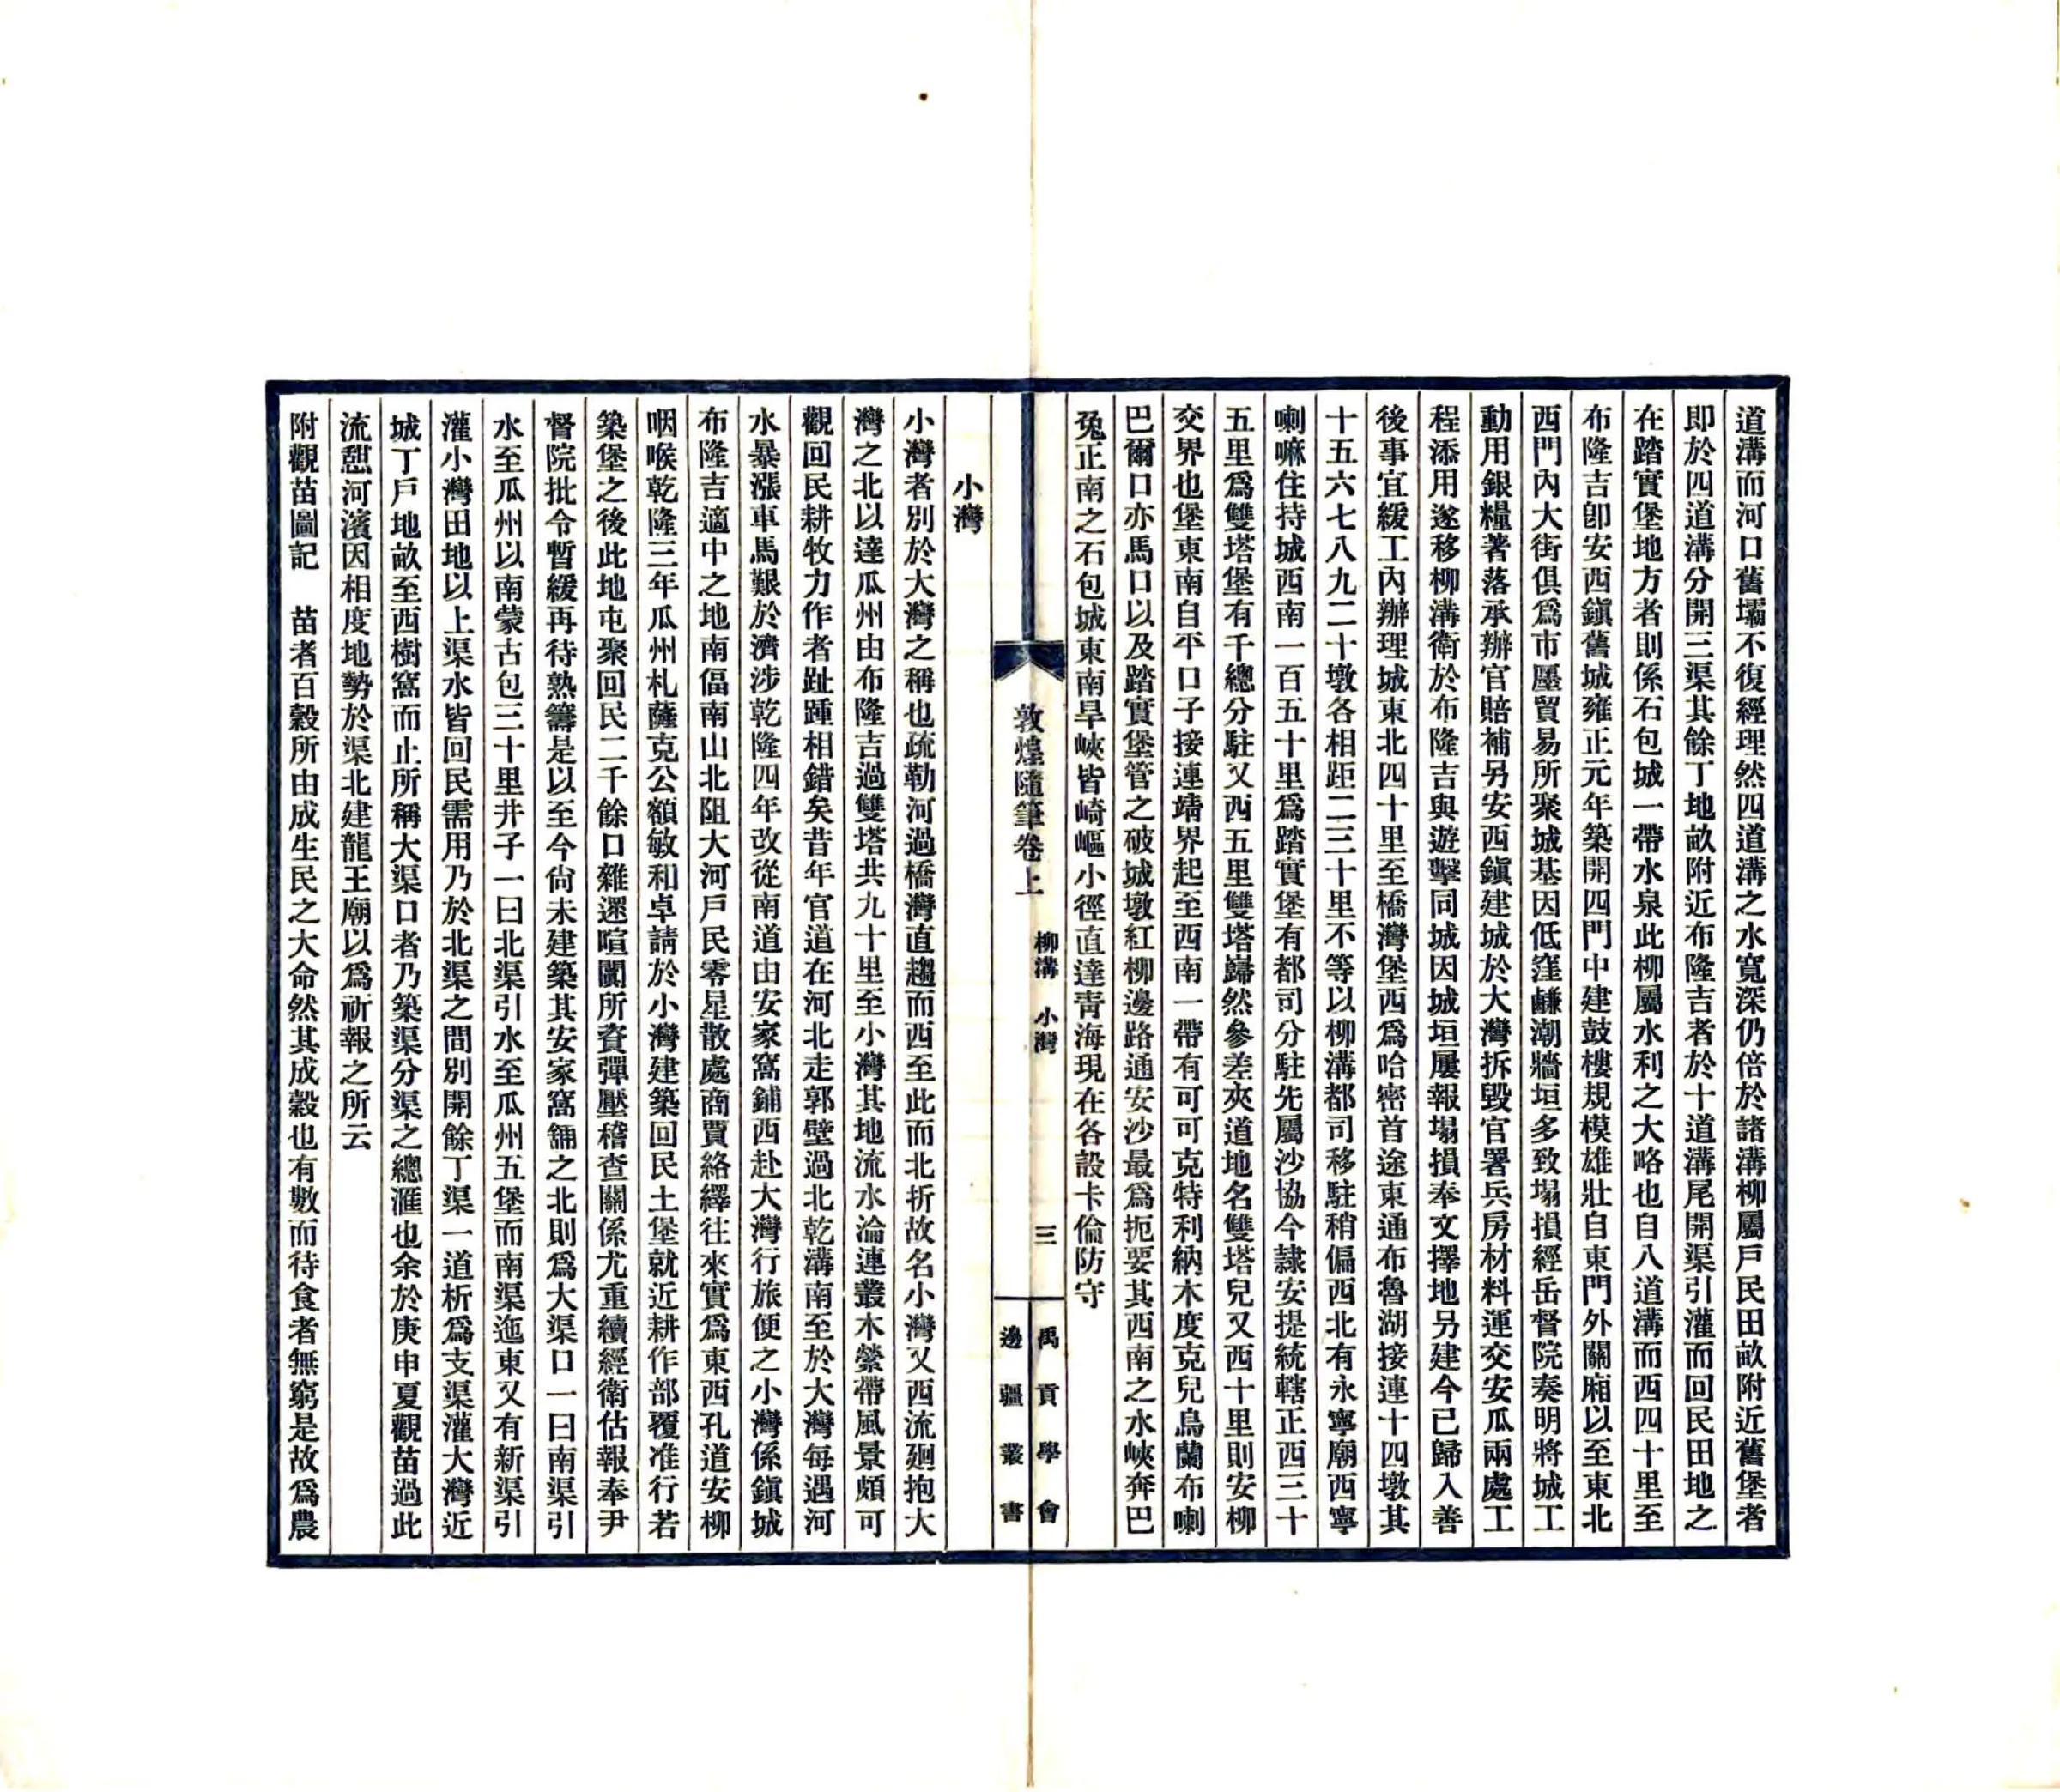 道溝而河口舊壩不復經理然四道溝之水寬深仍倍於諸溝柳屬戶民田畝附近舊堡者
即於四道溝分開三渠其餘丁地畝附近布隆吉者於十道溝尾開渠引灌而回民田地之
在踏實堡地方者則係石包城一帶水泉此柳屬水利之大略也自八道溝而西四十里至
布隆吉卽安西鎭舊城雍正元年築開四門中建鼓樓規模雄壯自東門外關廂以至東北
西門內大街俱爲市廛貿易所聚城基因低窪鹻潮牆垣多致塌損經岳督院奏明將城工
動用銀糧著落承辦官賠補另安西鎭建城於大灣拆毀官署兵房材料運交安瓜兩處工
程添用遂移柳溝衛於布隆吉與遊擊同城因城垣屢報塌損奉文擇地另建今已歸入善
後事宜緩工內辦理城東北四十里至橋灣堡西爲哈密首途東通布魯湖接連十四墩其
十五六七八九二十墩各相距二三十里不等以柳溝都司移駐稍偏西北有永寧廟西寧
喇嘛住持城西南一百五十里爲踏實堡有都司分駐先屬沙協今隷安提統轄正西三十
五里爲雙塔堡有千總分駐又西五里雙塔巋然參差夾道地名雙塔兒又西十里則安柳
交界也堡東南自平口子接連靖界起至西南一帶有可可克特利納木度克兒烏蘭布喇
巴爾口亦馬口以及踏實堡管之破城墩紅柳邊路通安沙最爲扼要其西南之水峽奔巴
兔正南之石包城東南旱峽皆崎嶇小徑直達靑海現在各設卡倫防守
敦煌隨筆卷上 柳溝 小灣 三
禹貢學會
邊疆叢書
小灣
小灣者別於大灣之稱也疏勒河過橋灣直趨而西至此而北折故名小灣又西流廻抱大
灣之北以達瓜州由布隆吉過雙塔共九十里至小灣其地流水淪連叢木縈帶風景頗可
觀回民耕牧力作者趾踵相錯矣昔年官道在河北走郭壁過北乾溝南至於大灣每遇河
水暴漲車馬艱於濟涉乾隆四年改從南道由安家窩鋪西赴大灣行旅便之小灣係鎭城
布隆吉適中之地南偪南山北阻大河戶民零星散處商賈絡繹往來實爲東西孔道安柳
咽喉乾隆三年瓜州札薩克公額敏和卓請於小灣建築回民土堡就近耕作部覆准行若
築堡之後此地屯聚回民二千餘口雜遝喧闐所資彈壓稽查關係尤重續經衛估報奉尹
督院批令暫緩再待熟籌是以至今尙未建築其安家窩舖之北則爲大渠口一曰南渠引
水至瓜州以南蒙古包三十里井子一曰北渠引水至瓜州五堡而南渠迤東又有新渠引
灌小灣田地以上渠水皆回民需用乃於北渠之間別開餘丁渠一道析爲支渠灌大灣近
城丁戶地畝至西樹窩而止所稱大渠口者乃築渠分渠之總滙也余於庚申夏觀苗過此
流憇河濱因相度地勢於渠北建龍王廟以爲祈報之所云
附觀苗圖記 苗者百穀所由成生民之大命然其成穀也有數而待食者無窮是故爲農